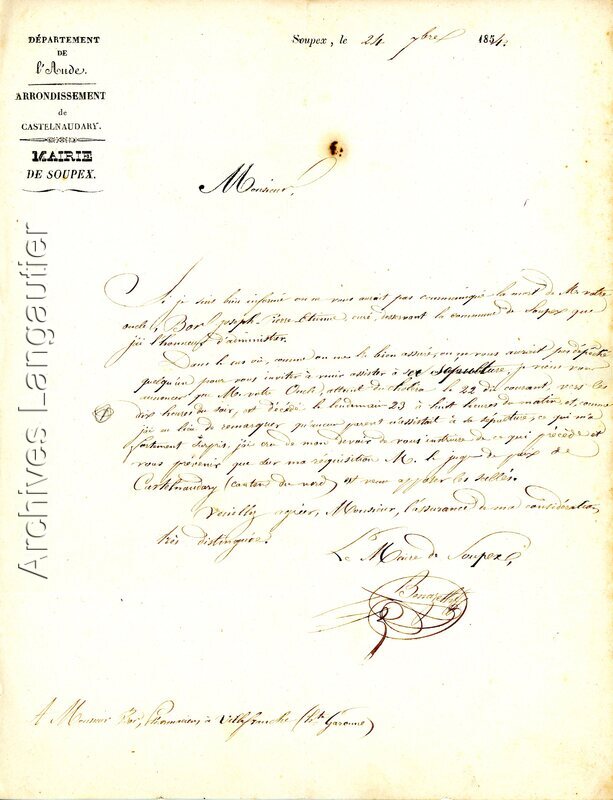 DÉPARTEMENT
DE
l'Aude.
ARRONDISSEMENT
de
CASTELNAUDARY.
MAIRIE
DE SOUPEX.
Soupex, le 24 7bre 1854.
Monsieur,
Si je suis bien informé on ne vous aurait pas communiqué la mort de Mr votre
oncle, Bor Joseph Pierre Etienne curé desservant la commune de Soupex que
j'ai l'honneur d'administrer.
Dans le cas où, comme on me le bien assure, on ne vous aurait pas dépêché
quelqu'un pour vous inviter à venir assister à sa sépulture, je viens vous
annoncer que Mr votre Oncle, atteint du choléra le 22 du courant, vers les
dix heures du soir, est décédé le lendemain 23 à huit heures du matin et, comme
j'ai eu lieu de remarquer qu'aucun parent n'assistait à sa sépulture, ce qui m'a
fortement surpris, j'ai cru de mon devoir de vous instruire de ce qui précède et
vous prévenir que sur ma réquisition M. le juge de paix de
Castelnaudary (canton du nord) est venu apposer les scellés.
Veuillez agréer, Monsieur, l'assurance de ma considération
très distinguée.
Le Maire de Soupex,
A Monsieur Bor, Pharmacien à Villefranche (hte Garonne)
Archives Langautier